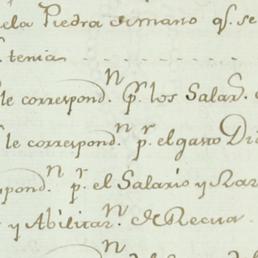 ela Piedra de mano q.e se
tenia
le correspond.n p.r los Salar.
le correspond.n p.r el gasto Di
pond.n p.r el Salario y Rar
y Abilitar.n de Recua